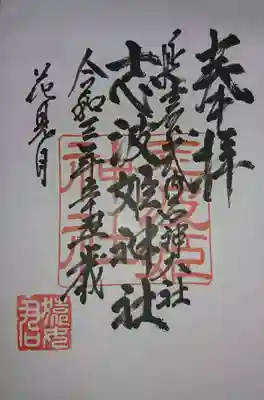 奉拝
延喜式内名神大社
志波姫神社
令和三年辛丑歳
花見月